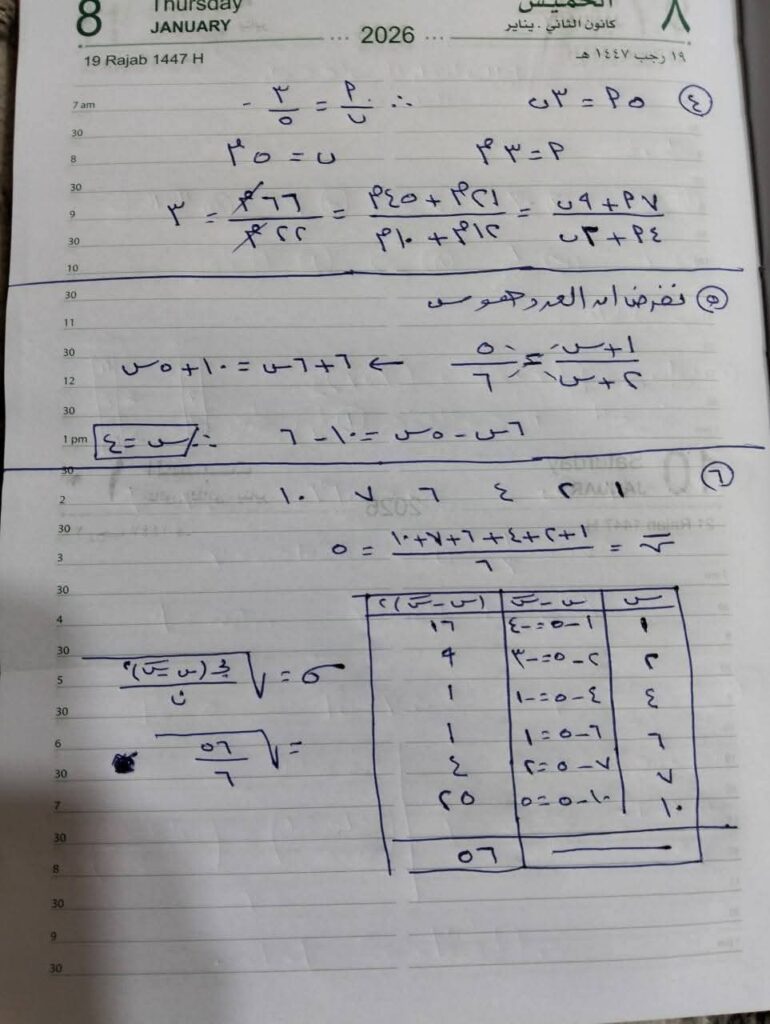 8 Thursday JANUARY ... 2026 ... الخميس كانون الثاني . يناير ٨
19 Rajab 1447 H ١٩ رجب ١٤٤٧ هـ
7 am
30
8
30
9
30
10
30
11
30
12
30
1 pm
30
2
30
3
30
4
30
5
30
6
30
7
30
8
30
9
30
٤ ٥أ = ٣ب ∴ أ/ب = ٣/٥
أ = ٣م ب = ٥م
(٧أ + ٩ب)/(٤أ + ٢ب) = (٢١م + ٤٥م)/(١٢م + ١٠م) = ٦٦م/٢٢م = ٣
٥ نفرض ان العدد هو س
(١ + س)/(٢ + س) = ٥/٦ ← ٦ + ٦س = ١٠ + ٥س
٦س - ٥س = ١٠ - ٦ ∴ س = ٤
٦ ١ ٢ ٤ ٦ ٧ ١٠
س̄ = (١+٢+٤+٦+٧+١٠)/٦ = ٥
س س - س̄ (س - س̄)٢
١ ١-٥=-٤ ١٦
٢ ٢-٥=-٣ ٩
٤ ٤-٥=-١ ١
٦ ٦-٥=١ ١
٧ ٧-٥=٢ ٤
١٠ ١٠-٥=٥ ٢٥
٥٦
σ = √(مجـ(س - س̄)٢/ن)
= √(٥٦/٦)